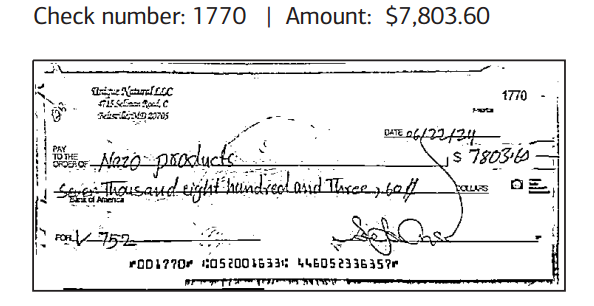 Check number: 1770 | Amount: $7,803.60
1770
Unique Natural LLC
4715 Road, C
Beltsville MD 20705
DATE 06/22/24
PAY TO THE ORDER OF Nazo products $ 7803.60
Seven Thousand eight hundred and Three, 60// DOLLARS
Bank of America
FOR V 752
⑈001770⑈ ⑆052001633⑆ 446052336357⑈